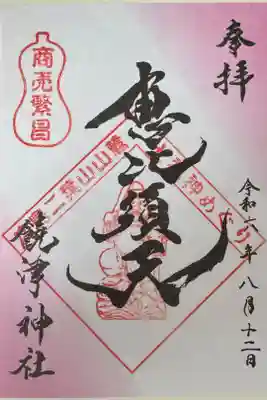 奉拝
令和六年八月十二日
恵比須天
商売繁昌
二葉山山麓
七福神めぐり
饒津神社